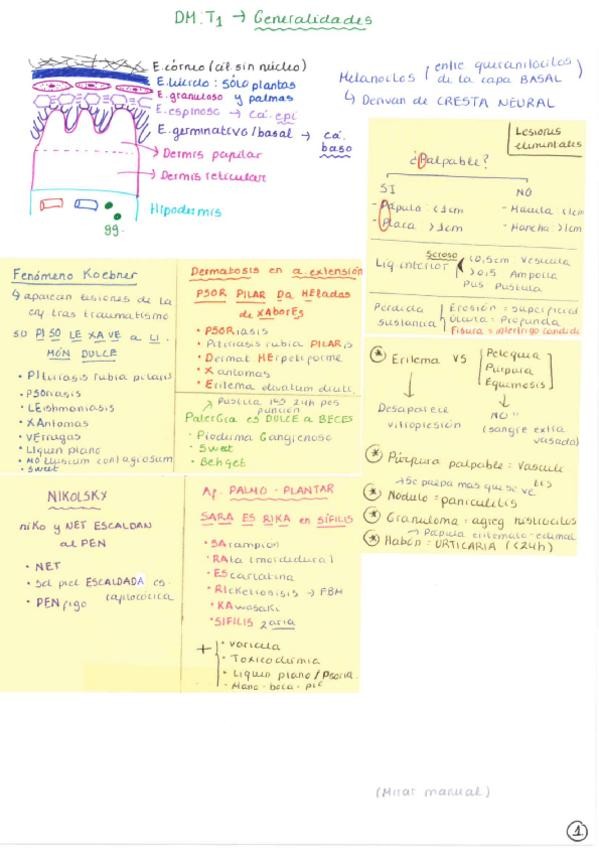 DM. T1 → Generalidades
E. córneo (cél. sin núcleo)
E. lúcido: sólo plantas
E. granuloso y palmas
E. espinoso → Ca. epi
E. germinativo/basal → ca.
baso
Dermis papilar
Dermis reticular
Hipodermis
99.
Melanocitos (entre queranitocitos
de la capa BASAL
↳ Derivan de CRESTA NEURAL
Lesiones
elementales
¿Palpable?
SI
NO
- Pápula <1cm
- Placa >1cm
- Mácula <1cm
- Mancha >1cm
Liq. interior
Seroso
<0,5cm Vesícula
>0,5 Ampolla
Pus Pústula
Perdida
sustancia
Erosión = superficial
Úlcera = Profunda
Fisura = intertrigo candida
Fenómeno Koebner
↳ aparecen lesiones de la
enf tras traumatismo
SU PI SO LE XA VE a LI
MÓN DULCE
• PItiriasis rubia pilaris
• PSOriasis
• LEishmaniasis
• XAntomas
• VErrugas
• LIquen plano
• MOlluscum contagiosum
• Sweet
Dermatosis en a. extensión
PSOR PILAR DA HEladas
de XABORES
• PSORiasis
• Pitiriasis rubia PILARis
• Dermat HErpetiforme
• Xantomas
• Eritema elvatum diutc.
Pústula tras 24h pos
punción
PaterGra es DULCE a BECES
• Pioderma Gangrenoso
• Sweet
• Behçet
* Eritema VS
Petequia
Púrpura
Equimosis
Desaparece
vitropresión
NO"
(sangre extra
vasada)
* Púrpura palpable = Vasculi
tis
→ Se palpa mas que se ve
* Nodulo = paniculitis
* Granuloma = agreg histiocitos
→ Pápula eritemato-edemat
* Habón = URTICARIA (<24h)
NIKOLSKY
niKo y NET ESCALDAN
al PEN
• NET
• Sd piel ESCALDADA es-
tafilocócica
• PENfigo
Af. PALMO-PLANTAR
SARA ES RIKA en SÍFILIS
• SArampión
• RAta (mordedura)
• EScarlatina
• RIckeitosisis → FBM
• KAwasaki
• SIFILIS 2aria
+
• Varicela
• Toxicodermia
• Liquen plano/Psoria.
• Mano-boca-pie
(Mirar manual)
1